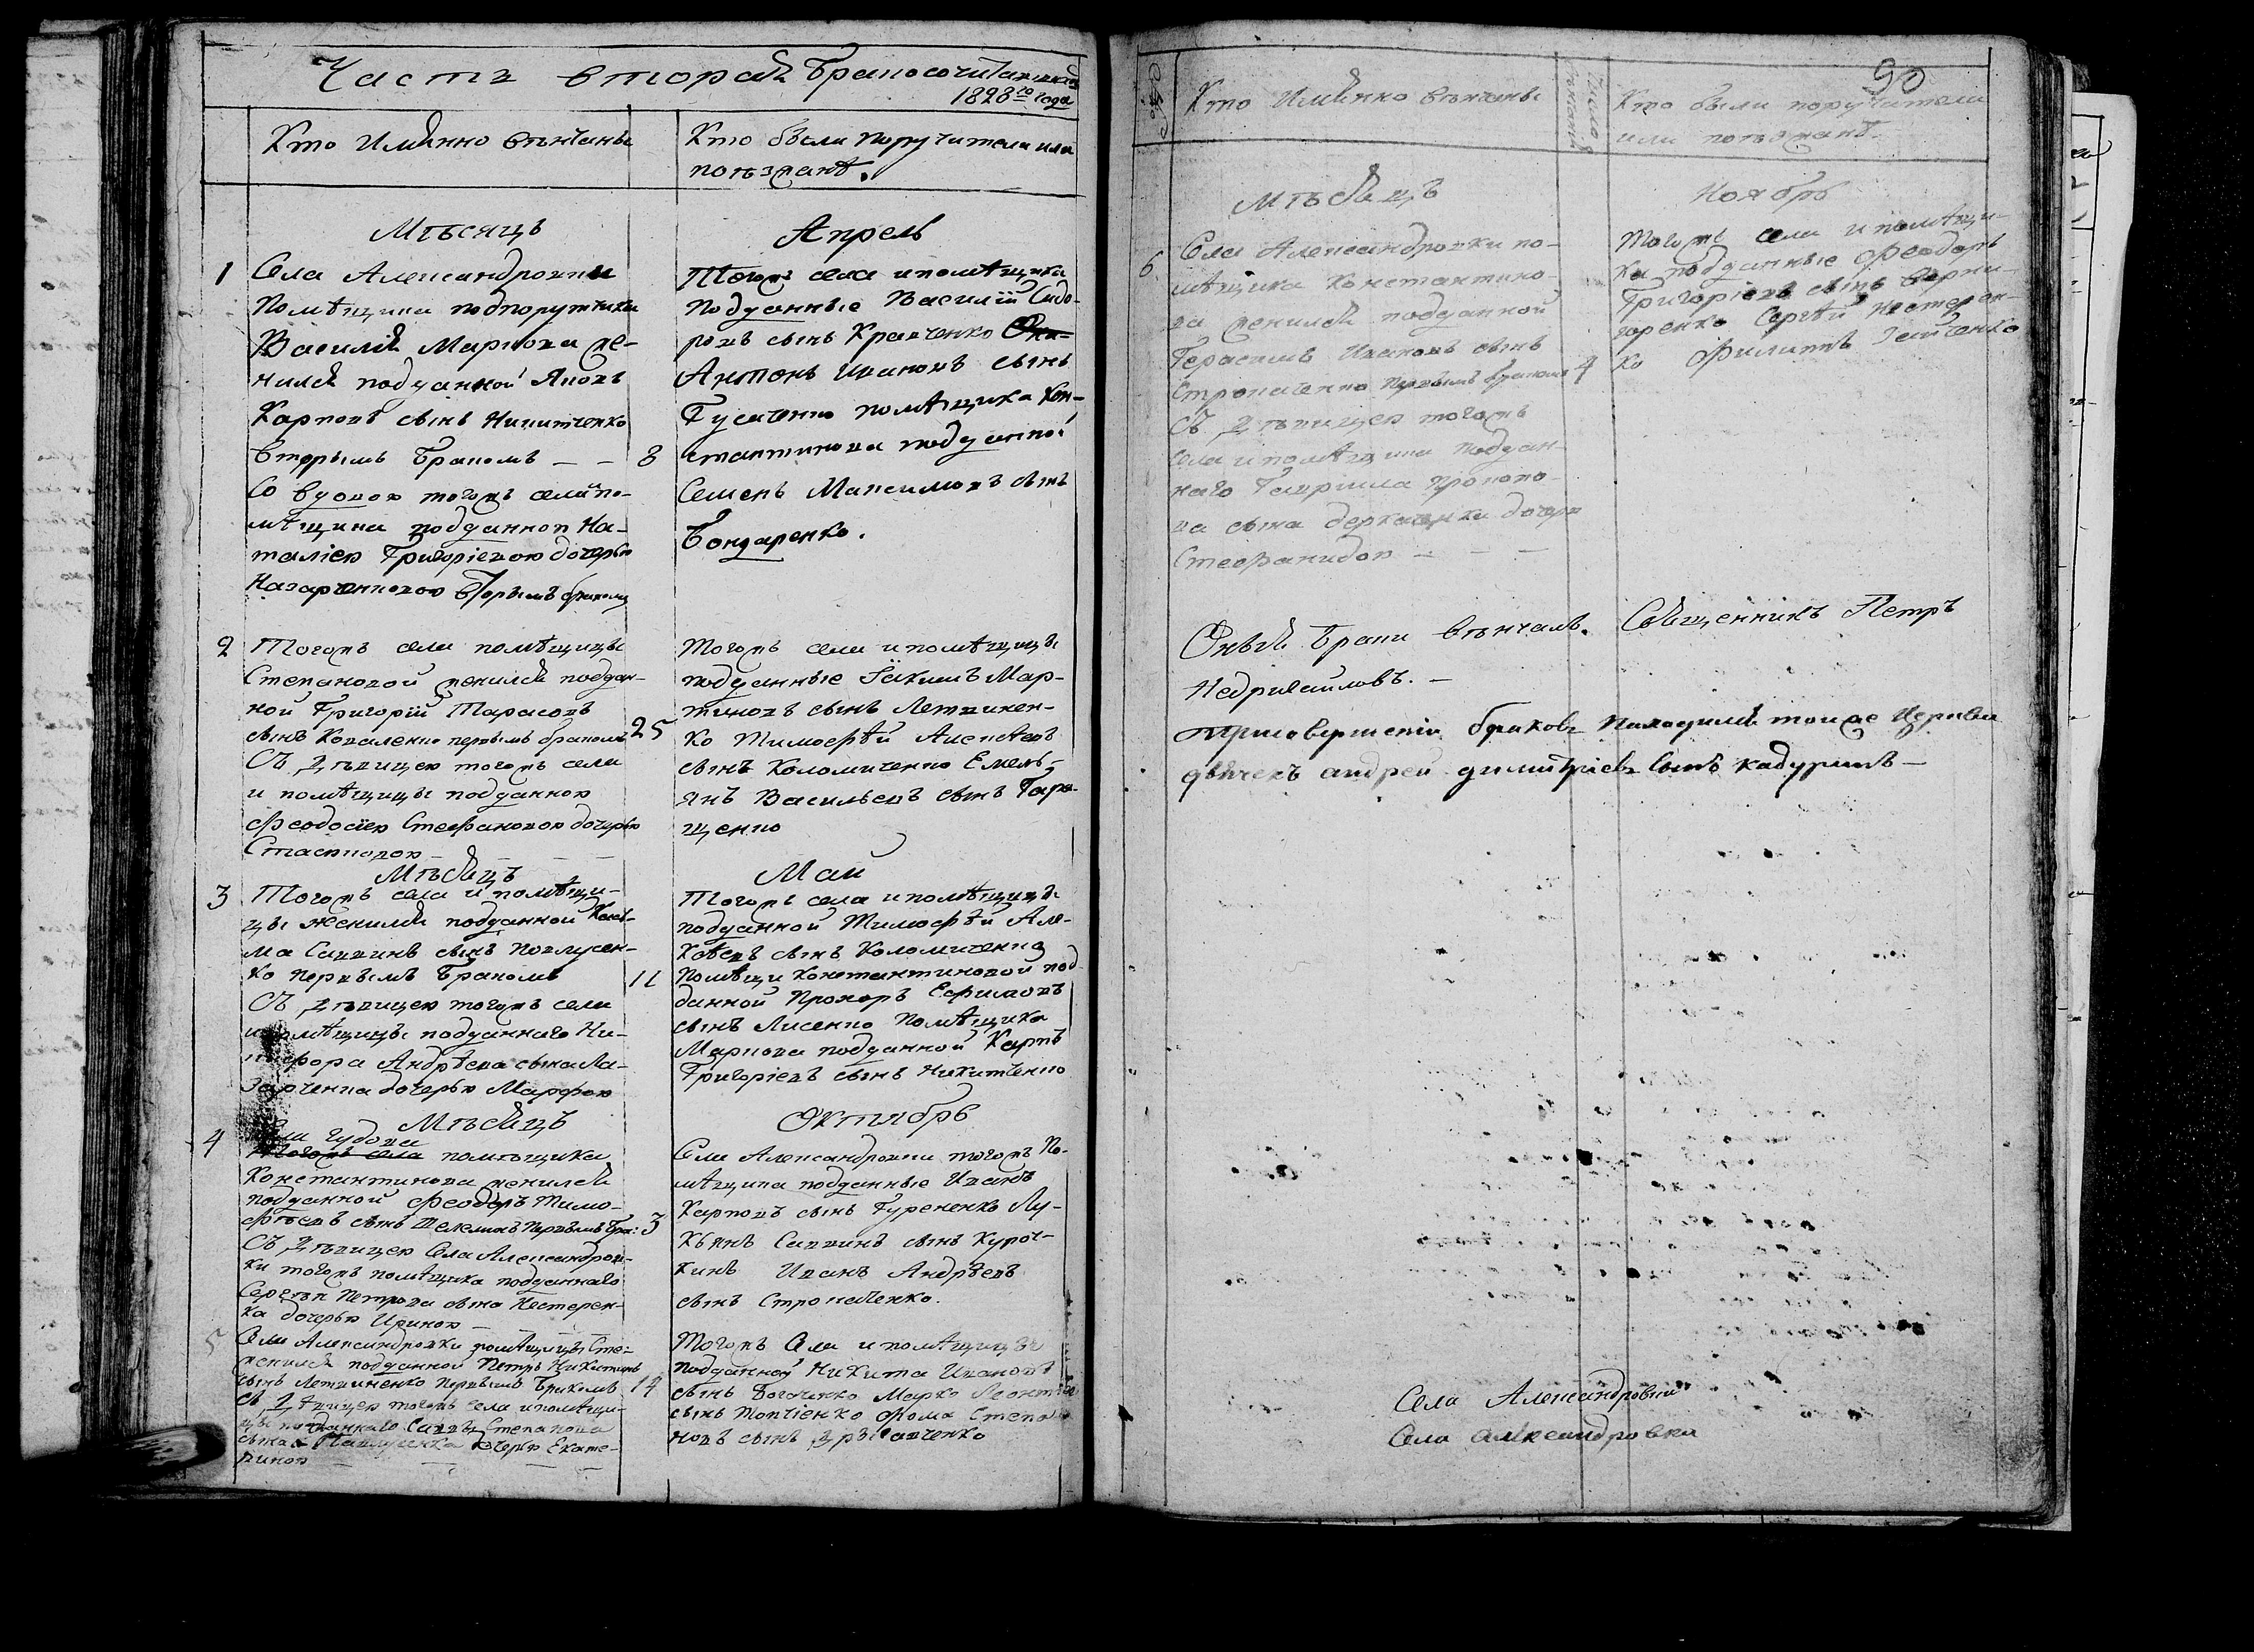 Часть вторая Бракосочитании
1828го года
Кто имянно вѣнчаны
Кто были поручители или
поѣзжанѣ.
Мѣсяцъ
Апрель
1
Села Александровки
Помѣщика подпорутчика
Василія Маркова же-
нился подданной Яковъ
Карповъ сынъ Никитченко
вторымъ бракомъ — —
Со вдовою тогожъ села по-
мѣщика подданною На-
таліею Григоріевою дочерью
Назарченковою вторымъ бракомъ
8
Тогожъ села и помѣщика
Подданные Василій Сидо-
ровъ сынъ Кравченко
Антонъ Ивановъ сынъ
Гусаченко помѣщика Кон-
стантинова подданной
Семенъ Максимовъ сынъ
Бондаренко.
2
Тогожъ села помѣщицы
Степановой женился поддан-
ной Григорій Тарасовъ
сынъ Коваленко первымъ бракомъ
Съ дѣвицею тогожъ села
и помѣщицы подданною
Феодосіею Стефановою дочерью
25
Тогожъ села и помѣщицы
подданные Іакимъ Мар-
тиновъ сынъ Летвинен-
ко Тимофѣй Алексѣевъ
сынъ Коломиченко Емель-
янъ Васильевъ сынъ Гара-
щенко
Мѣсяцъ
Май
3
Тогожъ села и помѣщи-
цы женился подданной Кось-
ма Саввинъ сынъ Павлусен-
ко первымъ бракомъ
Съ дѣвицею тогожъ села
и помѣщицы подданнаго Ни-
кифора Андрѣева сына Ла-
зарченка дочерью Марфою
11
Тогожъ села и помѣщицы
подданной Тимофѣй Але-
ксѣевъ сынъ Коломиченко
Помѣщи Константиновой под-
данной Прохоръ Ефимовъ
сынъ Лисенко Помѣщика
Маркова подданной Карпъ
Григоріевъ сынъ Никитченко
Мѣсяцъ
Октябрь
4
Села Гудова
Тогожъ села помѣщика
Константинова женился
подданной Феодоръ Тимо-
фѣевъ сынъ Шекелинъ первымъ бра:
Съ дѣвицею Села Александров-
ки тогожъ помѣщика подданнаго
Сергѣя Петрова сына Нестерен-
ка дочерью Ириною —
3
Села Александровки тогожъ По-
мѣщика подданные Иванъ
Карповъ сынъ Гурененко Лу-
кьянъ Саввинъ сынъ Куроч-
кинъ Иванъ Андрѣевъ
сынъ Строкаченко.
5
Села Александровки помѣщицы Сте:
женился подданной Петръ Никитинъ
сынъ Летвиненко первымъ бракомъ
съ дѣвицею тогожъ села и помѣщи-
цы подданнаго Саввы Степанова
сына Павлусенка дочерью Екате-
риною
14
Тогожъ села и помѣщицы
подданной Никита Ивановъ
сынъ Богаченко Марко Леонтіевъ
сынъ Топчіенко Фома Степа
новъ сынъ
90
Кто имянно вѣнчаны
Число
вѣнчанія
Кто были поручители
или поѣзжанѣ.
Мѣсяцъ
Ноябрь
6
Села Александровки по-
мѣщика Константино-
ва женился подданной
Герасимъ Ивановъ сынъ
Строкаченко первымъ бракомъ
Съ дѣвицею тогожъ
села и помѣщика поддан-
наго Гавриила Прокопо-
ва сына Деркаченка дочерью
Стефанидою — — —
4
Тогожъ села и помѣщи-
ка подданные Феодоръ
Григоріевъ сынъ Верни-
горенко Сергѣй Нестерен-
ко Филиппъ
Оныя браки вѣнчалъ. Священникъ Петръ
Недригайловъ. —
Присовершеніи браковъ находился тоиже церкви
дьячекъ андрей димитріевъ сынъ кадуринъ —
Села Александровки
Села александровки